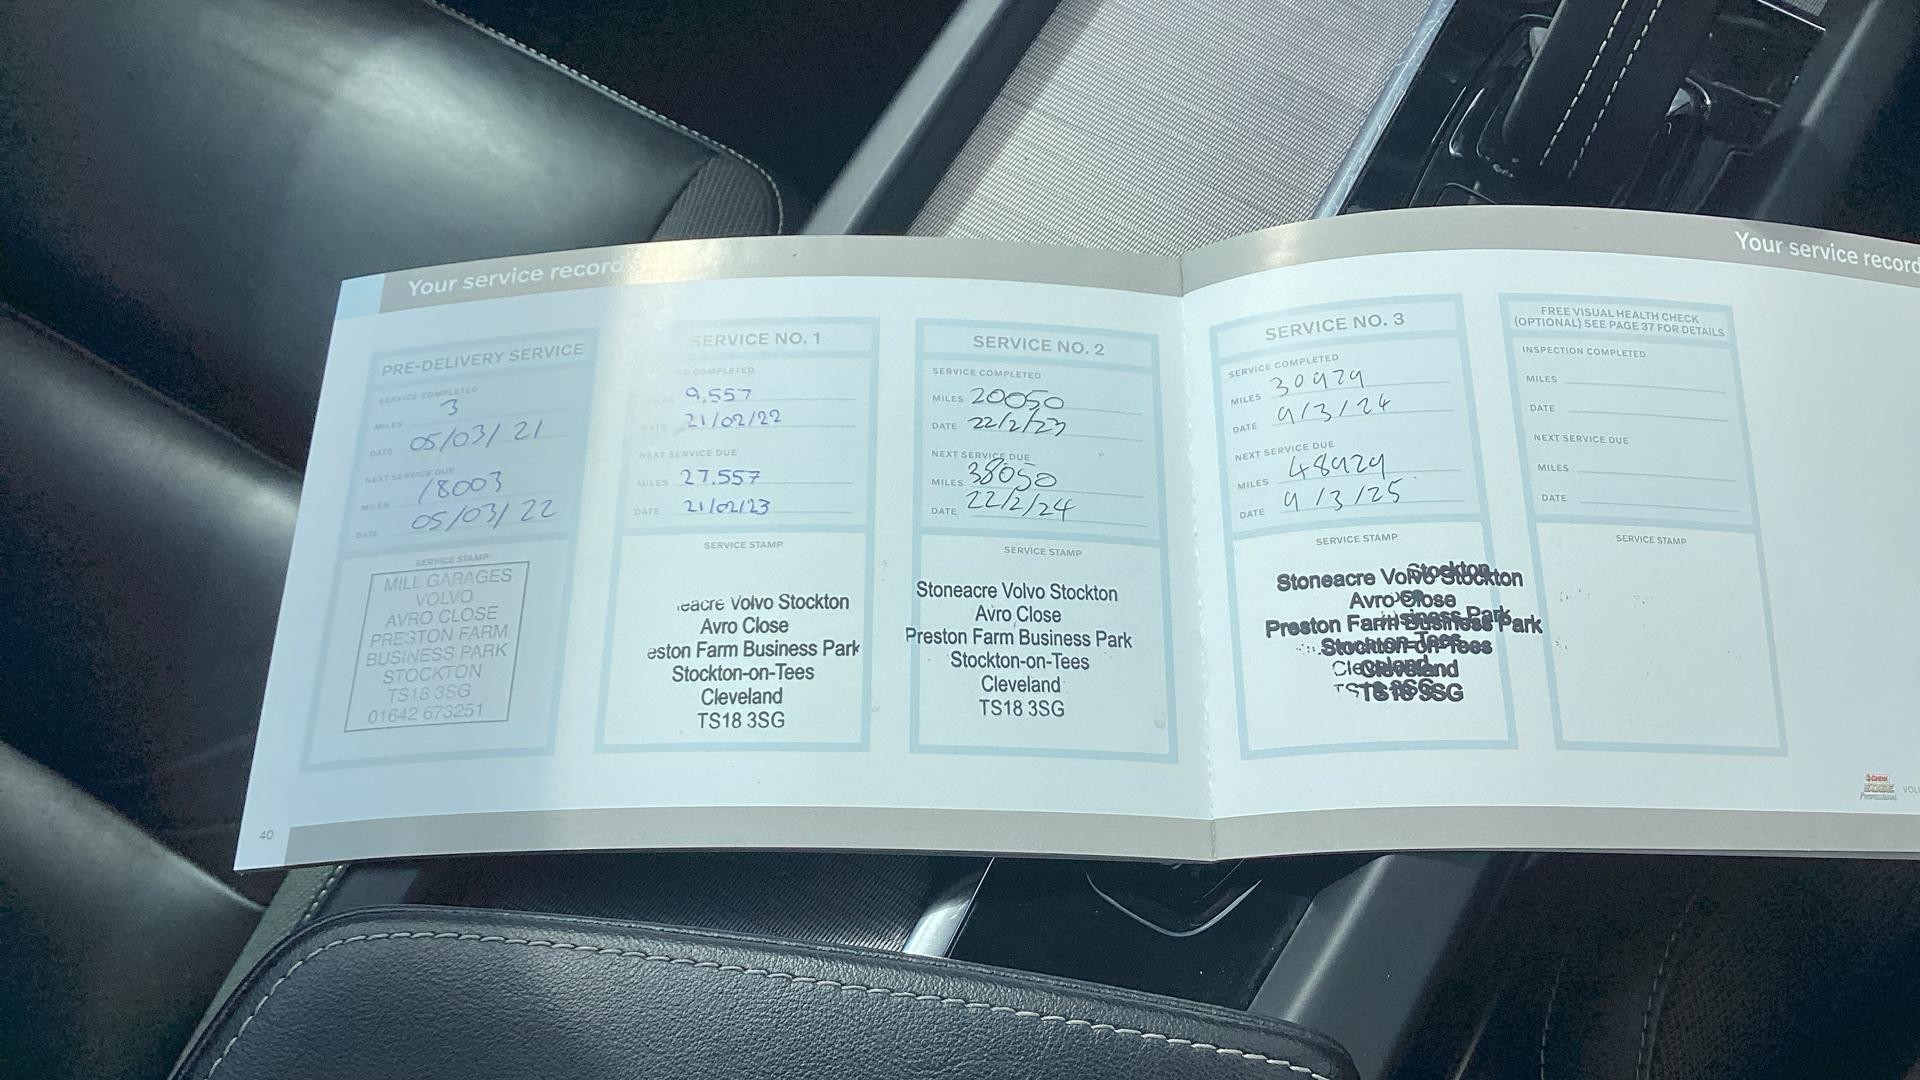 Your service record
PRE-DELIVERY SERVICE
SERVICE COMPLETED
MILES 3
DATE 05/03/21
NEXT SERVICE DUE
MILES 18003
DATE 05/03/22
SERVICE STAMP
MILL GARAGES
VOLVO
AVRO CLOSE
PRESTON FARM
BUSINESS PARK
STOCKTON
TS18 3SG
01642 673251
SERVICE NO. 1
COMPLETED
MILES 9,557
DATE 21/02/22
NEXT SERVICE DUE
MILES 27.557
DATE 21/02/23
SERVICE STAMP
eacre Volvo Stockton
Avro Close
eston Farm Business Park
Stockton-on-Tees
Cleveland
TS18 3SG
SERVICE NO. 2
SERVICE COMPLETED
MILES 20050
DATE 22/2/23
NEXT SERVICE DUE
MILES 38050
DATE 22/2/24
SERVICE STAMP
Stoneacre Volvo Stockton
Avro Close
Preston Farm Business Park
Stockton-on-Tees
Cleveland
TS18 3SG
40
Your service record
SERVICE NO. 3
SERVICE COMPLETED
MILES 30929
DATE 9/3/24
NEXT SERVICE DUE
MILES 48929
DATE 9/3/25
SERVICE STAMP
Stoneacre Volvo Stockton
Avro Close
Preston Farm Business Park
Stockton-on-Tees
Cleveland
TS18 3SG
FREE VISUAL HEALTH CHECK
(OPTIONAL) SEE PAGE 37 FOR DETAILS
INSPECTION COMPLETED
MILES
DATE
NEXT SERVICE DUE
MILES
DATE
SERVICE STAMP
Castrol
EDGE
Professional
VOL